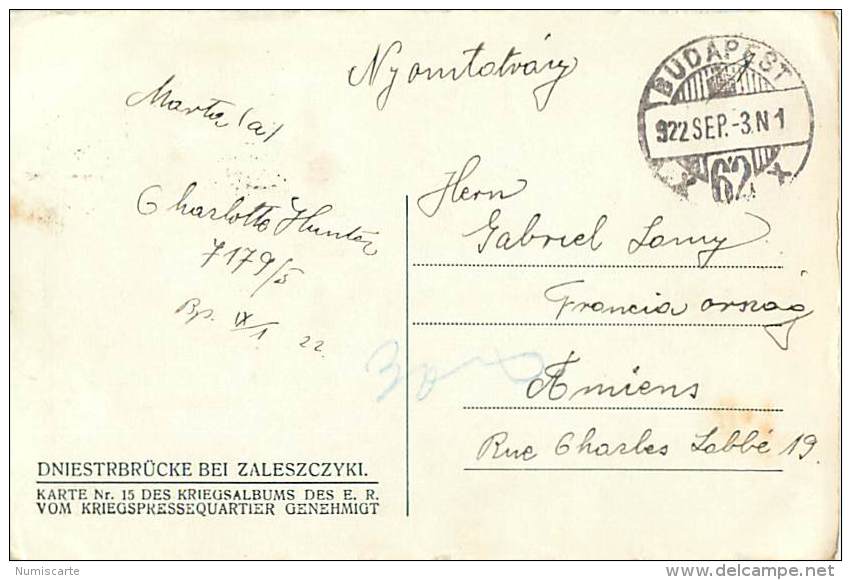 Nyomtatvány
BUDAPEST
922 SEP.-3.N 1
62
Marta (a)
Charlotte Hunter
7179/5
Bp. IX/1 22
Herrn
Gabriel Lamy
Francia ország
Amiens
Rue Charles Labbé 19.
DNIESTRBRÜCKE BEI ZALESZCZYKI.
KARTE Nr. 15 DES KRIEGSALBUMS DES E. R.
VOM KRIEGSPRESSEQUARTIER GENEHMIGT
Numiscarte
delcampe.net